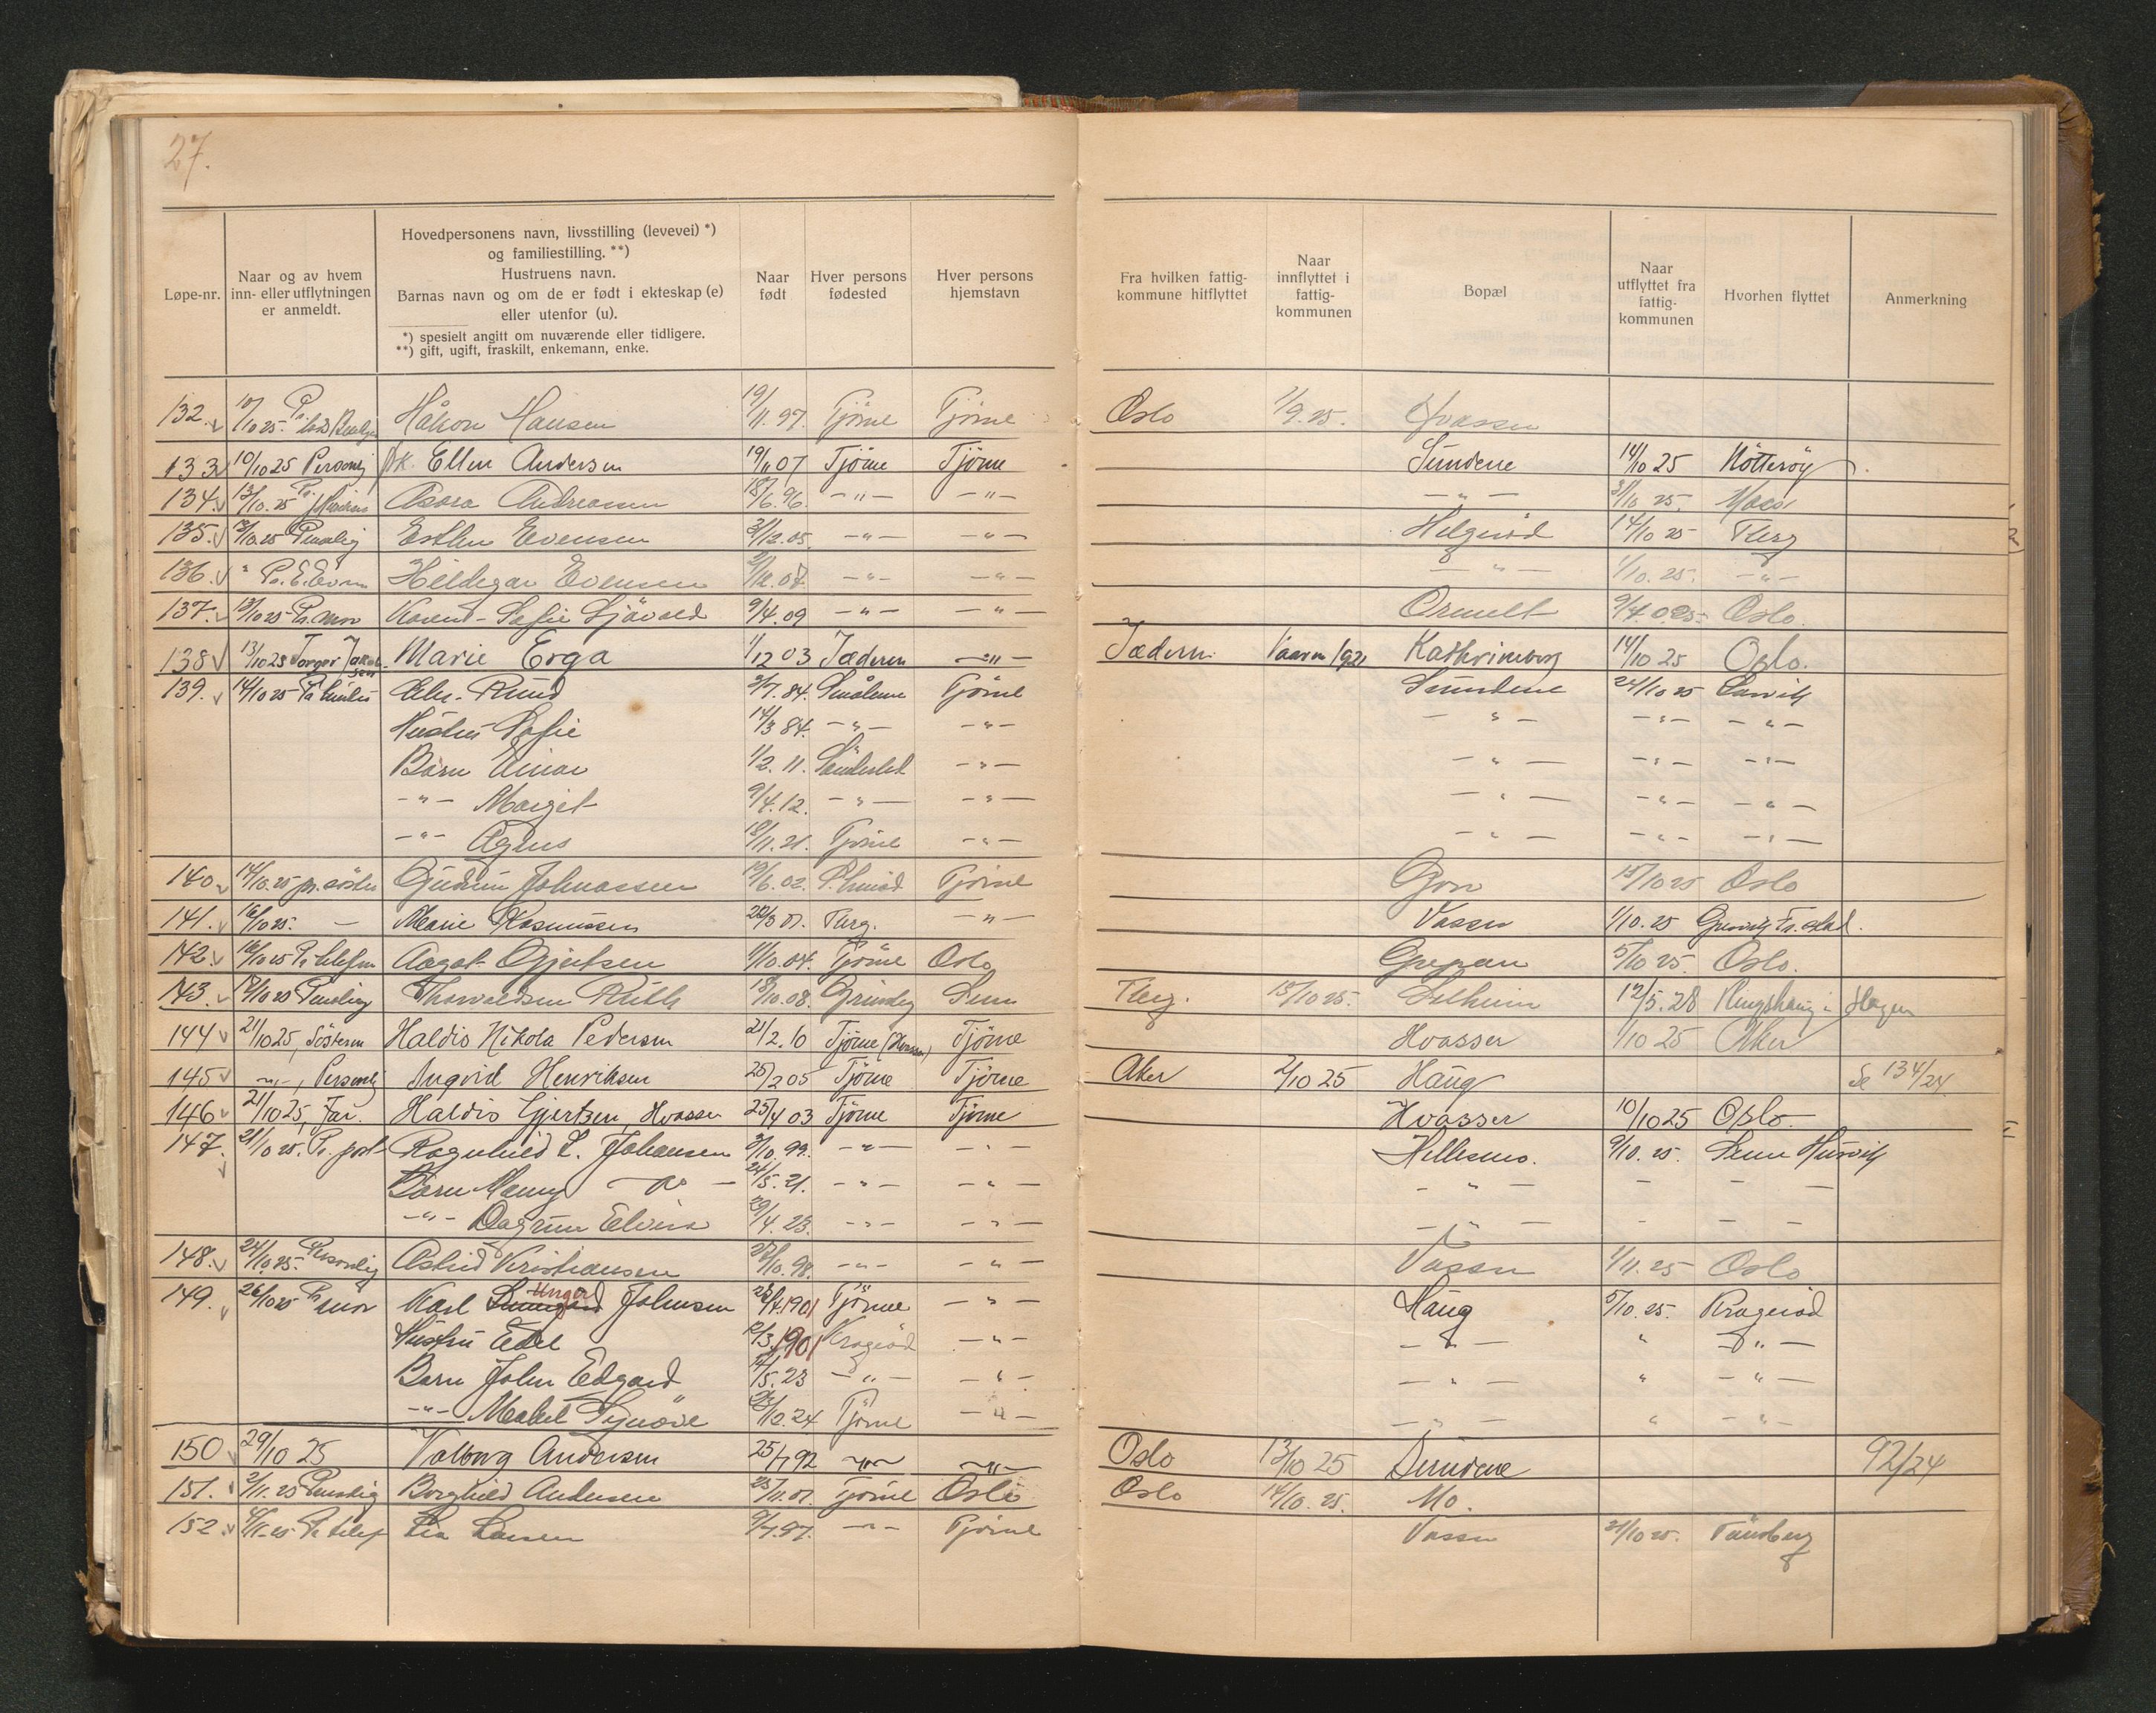 27.
Løpe-nr. | Naar og av hvem inn- eller utflytningen er anmeldt. | Hovedpersonens navn, livsstilling (levevei) *) og familiestilling. **) Hustruens navn. Barnas navn og om de er født i ekteskap (e) eller utenfor (u). *) spesielt angitt om nuværende eller tidligere. **) gift, ugift, fraskilt, enkemann, enke. | Naar født | Hver persons fødested | Hver persons hjemstavn | Fra hvilken fattig-kommune hitflyttet | Naar innflyttet i fattig-kommunen | Bopæl | Naar utflyttet fra fattig-kommunen | Hvorhen flyttet | Anmerkning
132. 10/10 25. Pr. Håkon Hansen 19/11.97. Tjöme Tjöme Oslo 1/9.25. Hvasser
133 10/10 25 Personlig frk. Ellen Andersen 19/11 07 Tjöme Tjöme Sundene 14/10 25 Nötteröy
134. 13/10.25 Pr. Andreassen /6.96. -"- -"- -"- 31/10 25. Moss
135. 13/10.25 Personlig Esther Evensen 31/12.05. -"- -"- Helgeröd 14/10 25 Tbrg
136. " Pr. E. Evensen Hildegar Evensen /12.07. -"- -"- -"- 1/10.25. -"-
137. 13/10 25 Pr. mor Karen-Sofie Sjövold 9/4.09 -"- -"- Ormelt Oslo.
138 13/10 25 Torger Jakobsen Marie Erga 1/12 03 Jæderen -"- Jæderen Vaaren 1921 Kathrineborg 14/10 25 Oslo.
139. 14/10 25 Pr. Rund 2/7.84. Smålene Tjöme Sundene 24/10 25 Larvik
Hustru Sofie 14/3 84. -"- -"- -"- -"- -"-
Barn Einar 1/2.11. Sönderled -"- -"- -"- -"-
-"- Margit 9/4.12. -"- -"- -"- -"- -"-
-"- Agnes 18/11.21. Tjöme -"- -"- -"- -"-
140. 14/10.25 pr. söster Gudrun Johnassen 19/6.02. Tjöme Gjon 15/10 25 Oslo
141. 16/10 25. - Marie Rasmussen Tbrg. -"- Vasser 1/10.25
142. 16/10 25 Pr. telefon Aagot Gjertsen 1/10.04. Tjöme Oslo Grepan 5/10 25. Oslo.
143. Personlig Thorvaldsen Ruth 18/10.08. Sem Tbrg. 15/10 25. Solheim 12/5.28 Ringshaug i Slagen
144 21/10 25, Sösteren Haldis Nikola Pedersen 21/2.10 Tjöme (Hvasser) Tjöme Hvasser 1/10 25 Aker
145 -"-, Personlig Ingrid Henriksen 25/2 05 Tjöme Tjöme Aker 2/10 25 Haug Se 134/24.
146 21/10 25, Far. Haldis Gjertsen, Hvasser 25/4 03 Tjöme Tjöme Hvasser 10/10 25 Oslo.
147. 21/10 25. Pr. post Ragnhild L. Johansen 3/10.99. -"- -"- Hellesmo. 9/10.25. Sem Husvik
Barn Manny - do - 24/5.21. -"- -"- -"- - - -
-"- Dagrun Elvira 29/4.23. -"- -"- -"- - - -
148. 24/10.25. Personlig Astrid Kristiansen /10.98. -"- -"- Vasser 1/11.25 Oslo
149. 26/10 25 Pr mor Karl Unger Johnsen 1901 Tjöme -"- Haug 5/10.25. Krageröd
Hustru Edel 12/3.1901 Krageröd -"- -"- " -"-
Barn John Edgard /5.23 -"- -"- -"- " -"-
-"- Mabel Synöve /10.24 Tjöme -"- -"- " -"-
150 29/10 25 Valborg Andersen 25/7 92 -"- -"- Oslo 13/10 25 Sundene 92/24
151. 2/11.25 Personlig Borghild Andersen 25/11.01. Tjöme Oslo Oslo 14/10.25. Mo.
152. Pr telef Lea Larsen 9/7.97. -"- Tjöme Vasser 21/10 25. Tönsberg